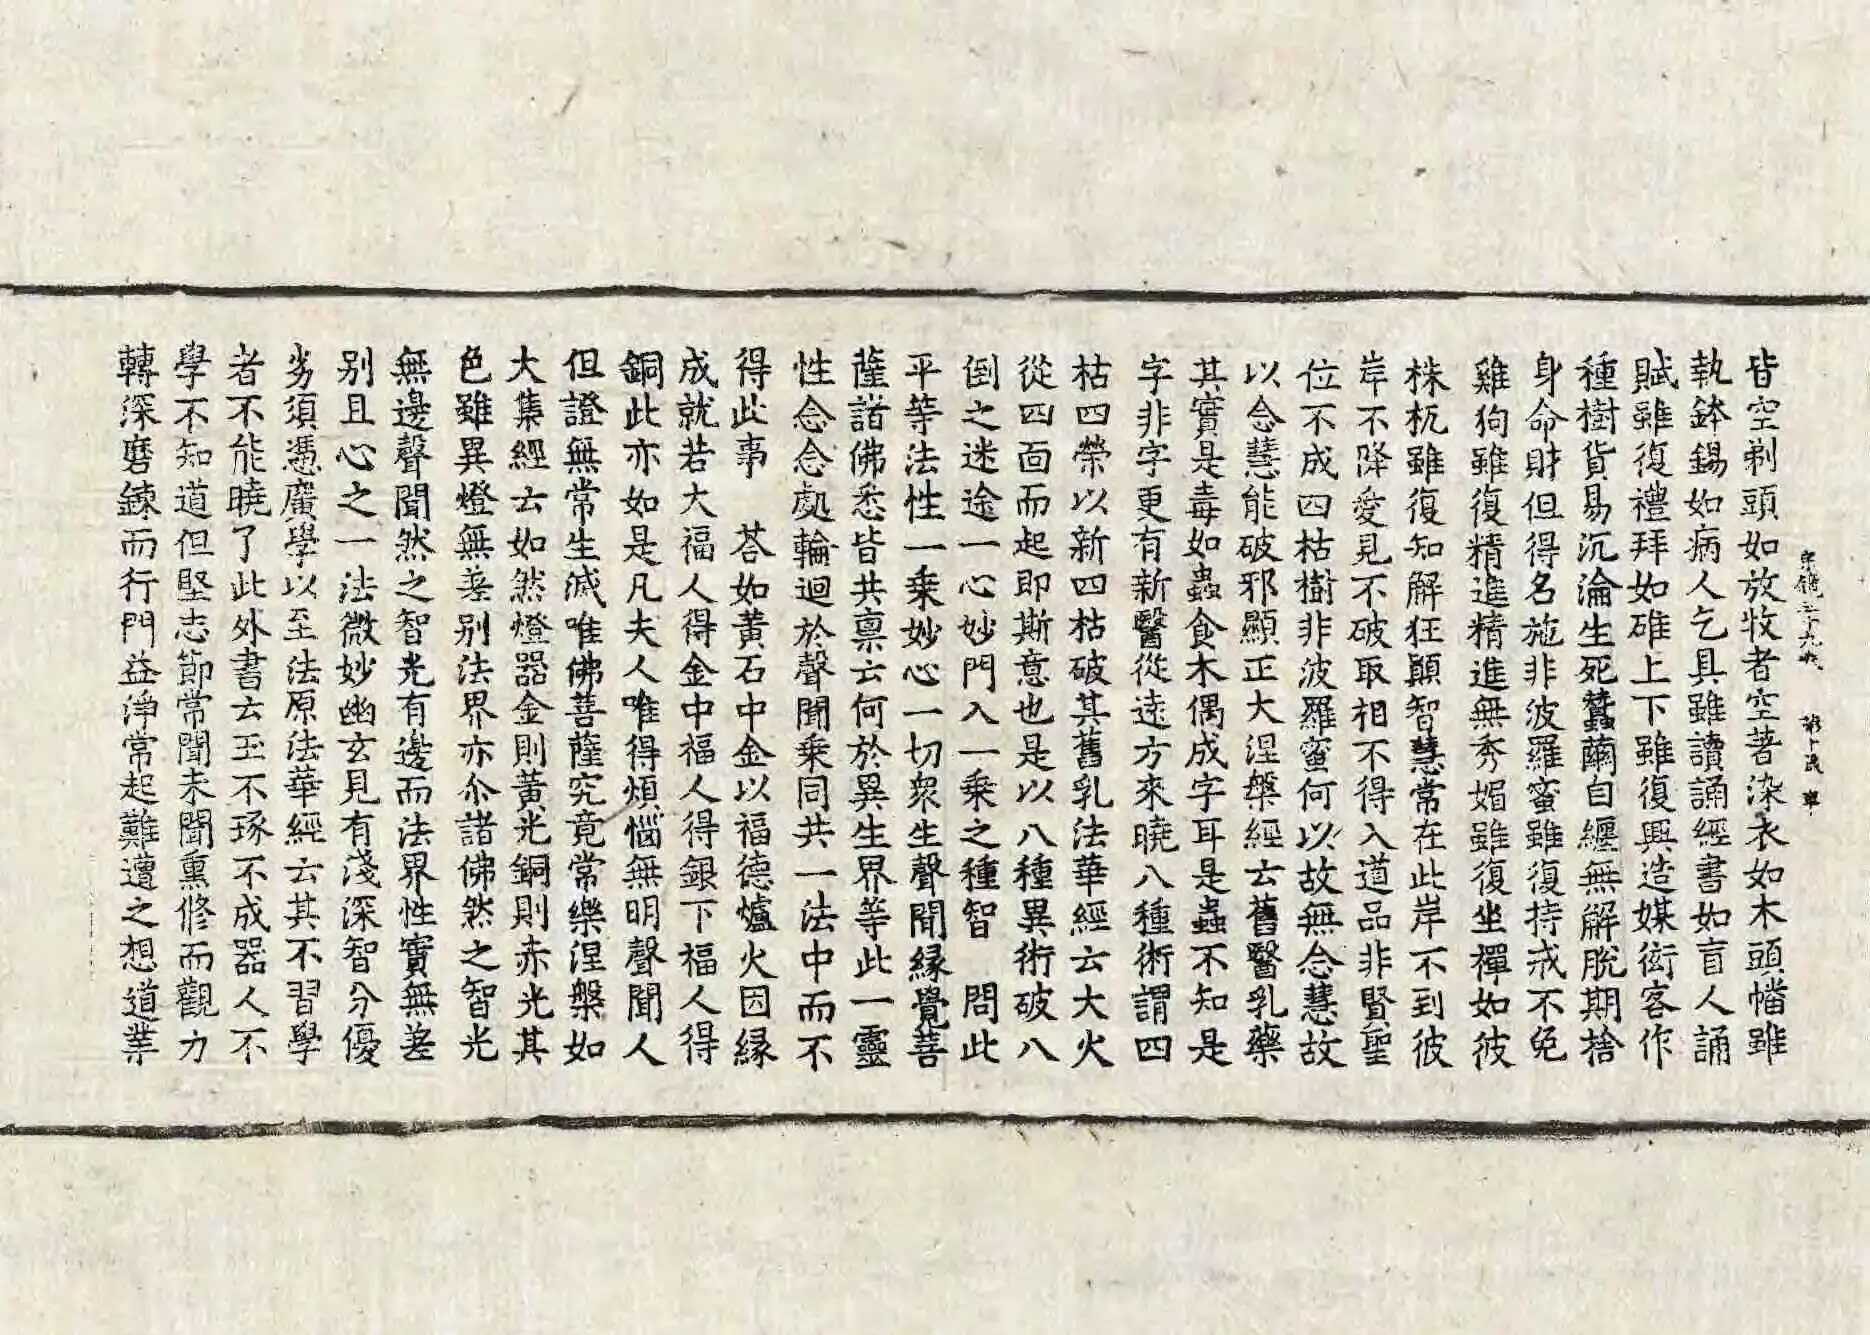 宗鏡三十九
皆空剃頭如放牧者空著染衣如木頭幡雖
執鉢錫如病人乞具雖讀誦經書如盲人誦
賦雖復禮拜如碓上下雖復興造媒衒客作
種樹貨易沉淪生死蠶繭自纏無解脫期捨
身命財但得名施非波羅蜜雖復持戒不免
雞狗雖復精進精進無秀媚雖復坐禪如彼
株杌雖復知解狂顚智慧常在此岸不到彼
岸不降愛見不破取相不得入道品非賢聖
位不成四枯樹非波羅蜜何以故無念慧故
以念慧能破邪顯正大涅槃經云舊醫乳藥
其實是毒如蟲食木偶成字耳是蟲不知是
字非字更有新醫從遠方來曉八種術謂四
枯四榮以新四枯破其舊乳法華經云大火
從四面而起即斯意也是以八種異術破八
倒之迷途一心妙門入一乘之種智　問此
平等法性一乘妙心一切衆生聲聞緣覺菩
薩諸佛悉皆共禀云何於異生界等此一靈
性念念處輪迴於聲聞乘同共一法中而不
得此事　荅如黃石中金以福德爐火因緣
成就若大福人得金中福人得銀下福人得
銅此亦如是凡夫人唯得煩惱無明聲聞人
但證無常生滅唯佛菩薩究竟常樂涅槃如
大集經云如然燈器金則黃光銅則赤光其
色雖異燈無差别法界亦尒諸佛然之智光
無邊聲聞然之智光有邊而法界性實無差
别且心之一法微妙幽玄見有淺深智分優
劣須憑廣學以至法原法華經云其不習學
者不能曉了此外書云玉不琢不成器人不
學不知道但堅志節常聞未聞熏修而觀力
轉深磨鍊而行門益淨常起難遭之想道業